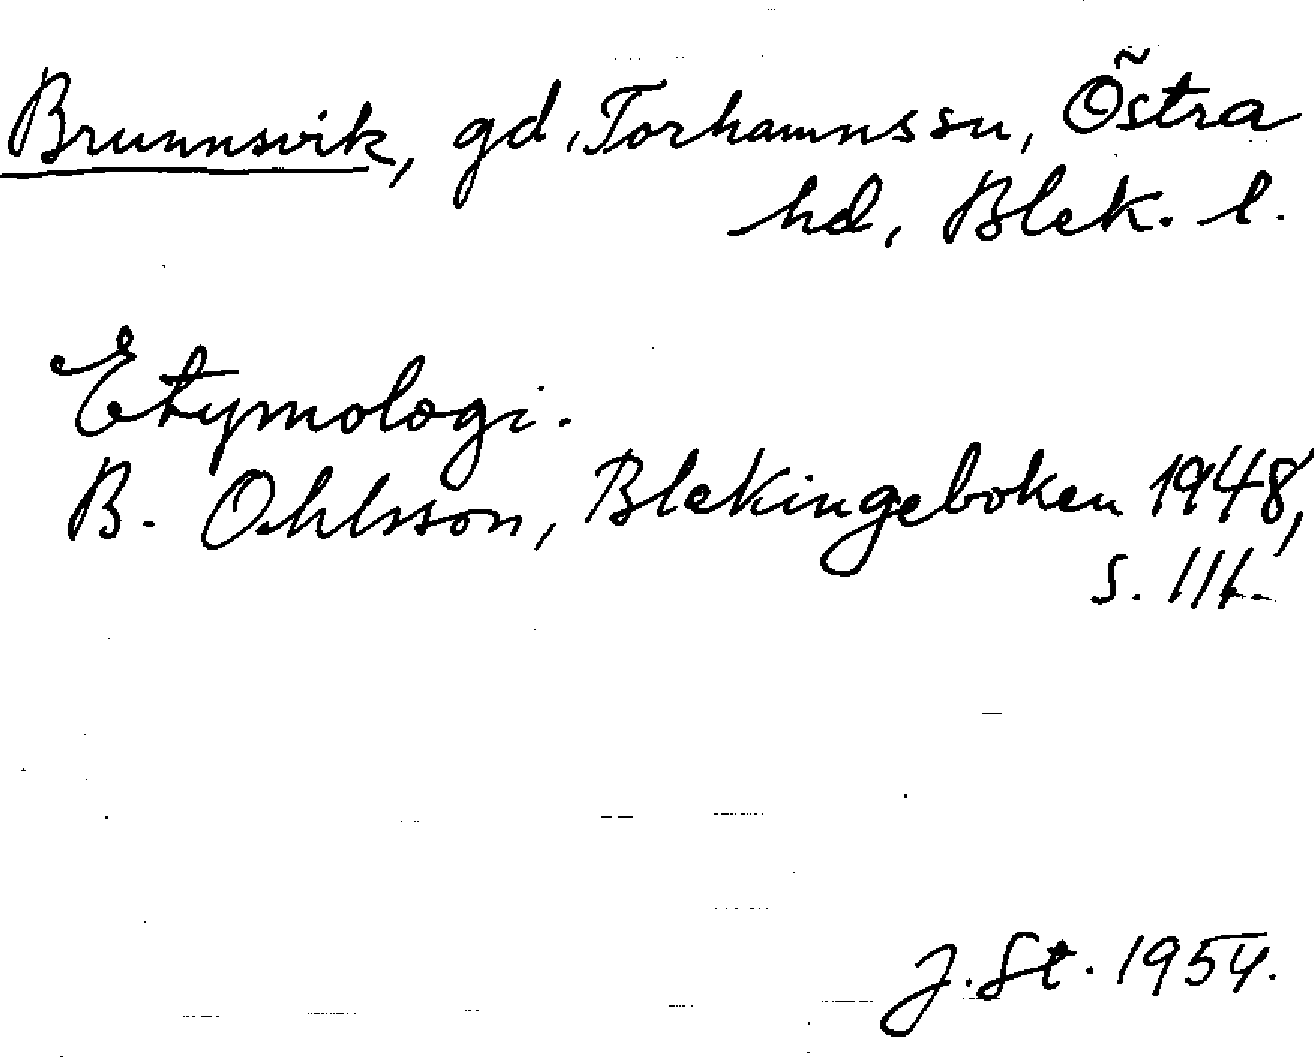 Brunnsvik, gd, Torhamns sn, Östra
hd, Blek. l.
Etymologi.
B. Ohlsson, Blekingeboken 1948,
s. 116.
J. St. 1954.